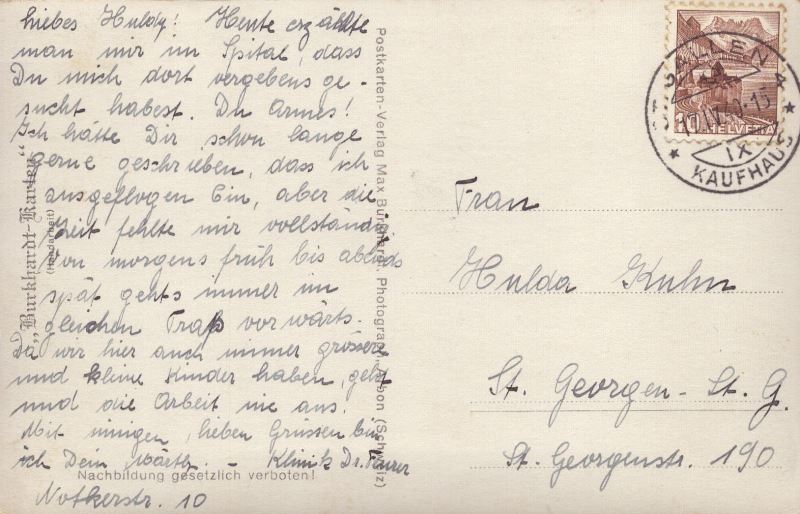 Liebes Huldy! Heute erzählte
man mir im Spital, dass
Du mich dort vergebens ge-
sucht habest. Du Armes!
Ich hätte Dir schon lange
gerne geschrieben, dass ich
ausgeflogen bin, aber die
Zeit fehlte mir vollständig
Von morgens früh bis abends
spät gehts immer im
gleichen Trab vorwärts.
Da wir hier auch immer grössere
und kleine Kinder haben, geht
und die Arbeit nie aus.
Mit innigen, lieben Grüssen bin
ich Dein - Klinik Dr.
Notkerstr. 10
„Burkhardt-Karten"
(Handarbeit)
Nachbildung gesetzlich verboten!
Postkarten-Verlag Max Burkhardt, Photograph, Arbon (Schweiz)
HELVETIA
ST. GALLEN 4
KAUFHAUS
IX
Frau
Hulda Kuhn
St. Georgen - St. G.
St. Georgenstr. 190